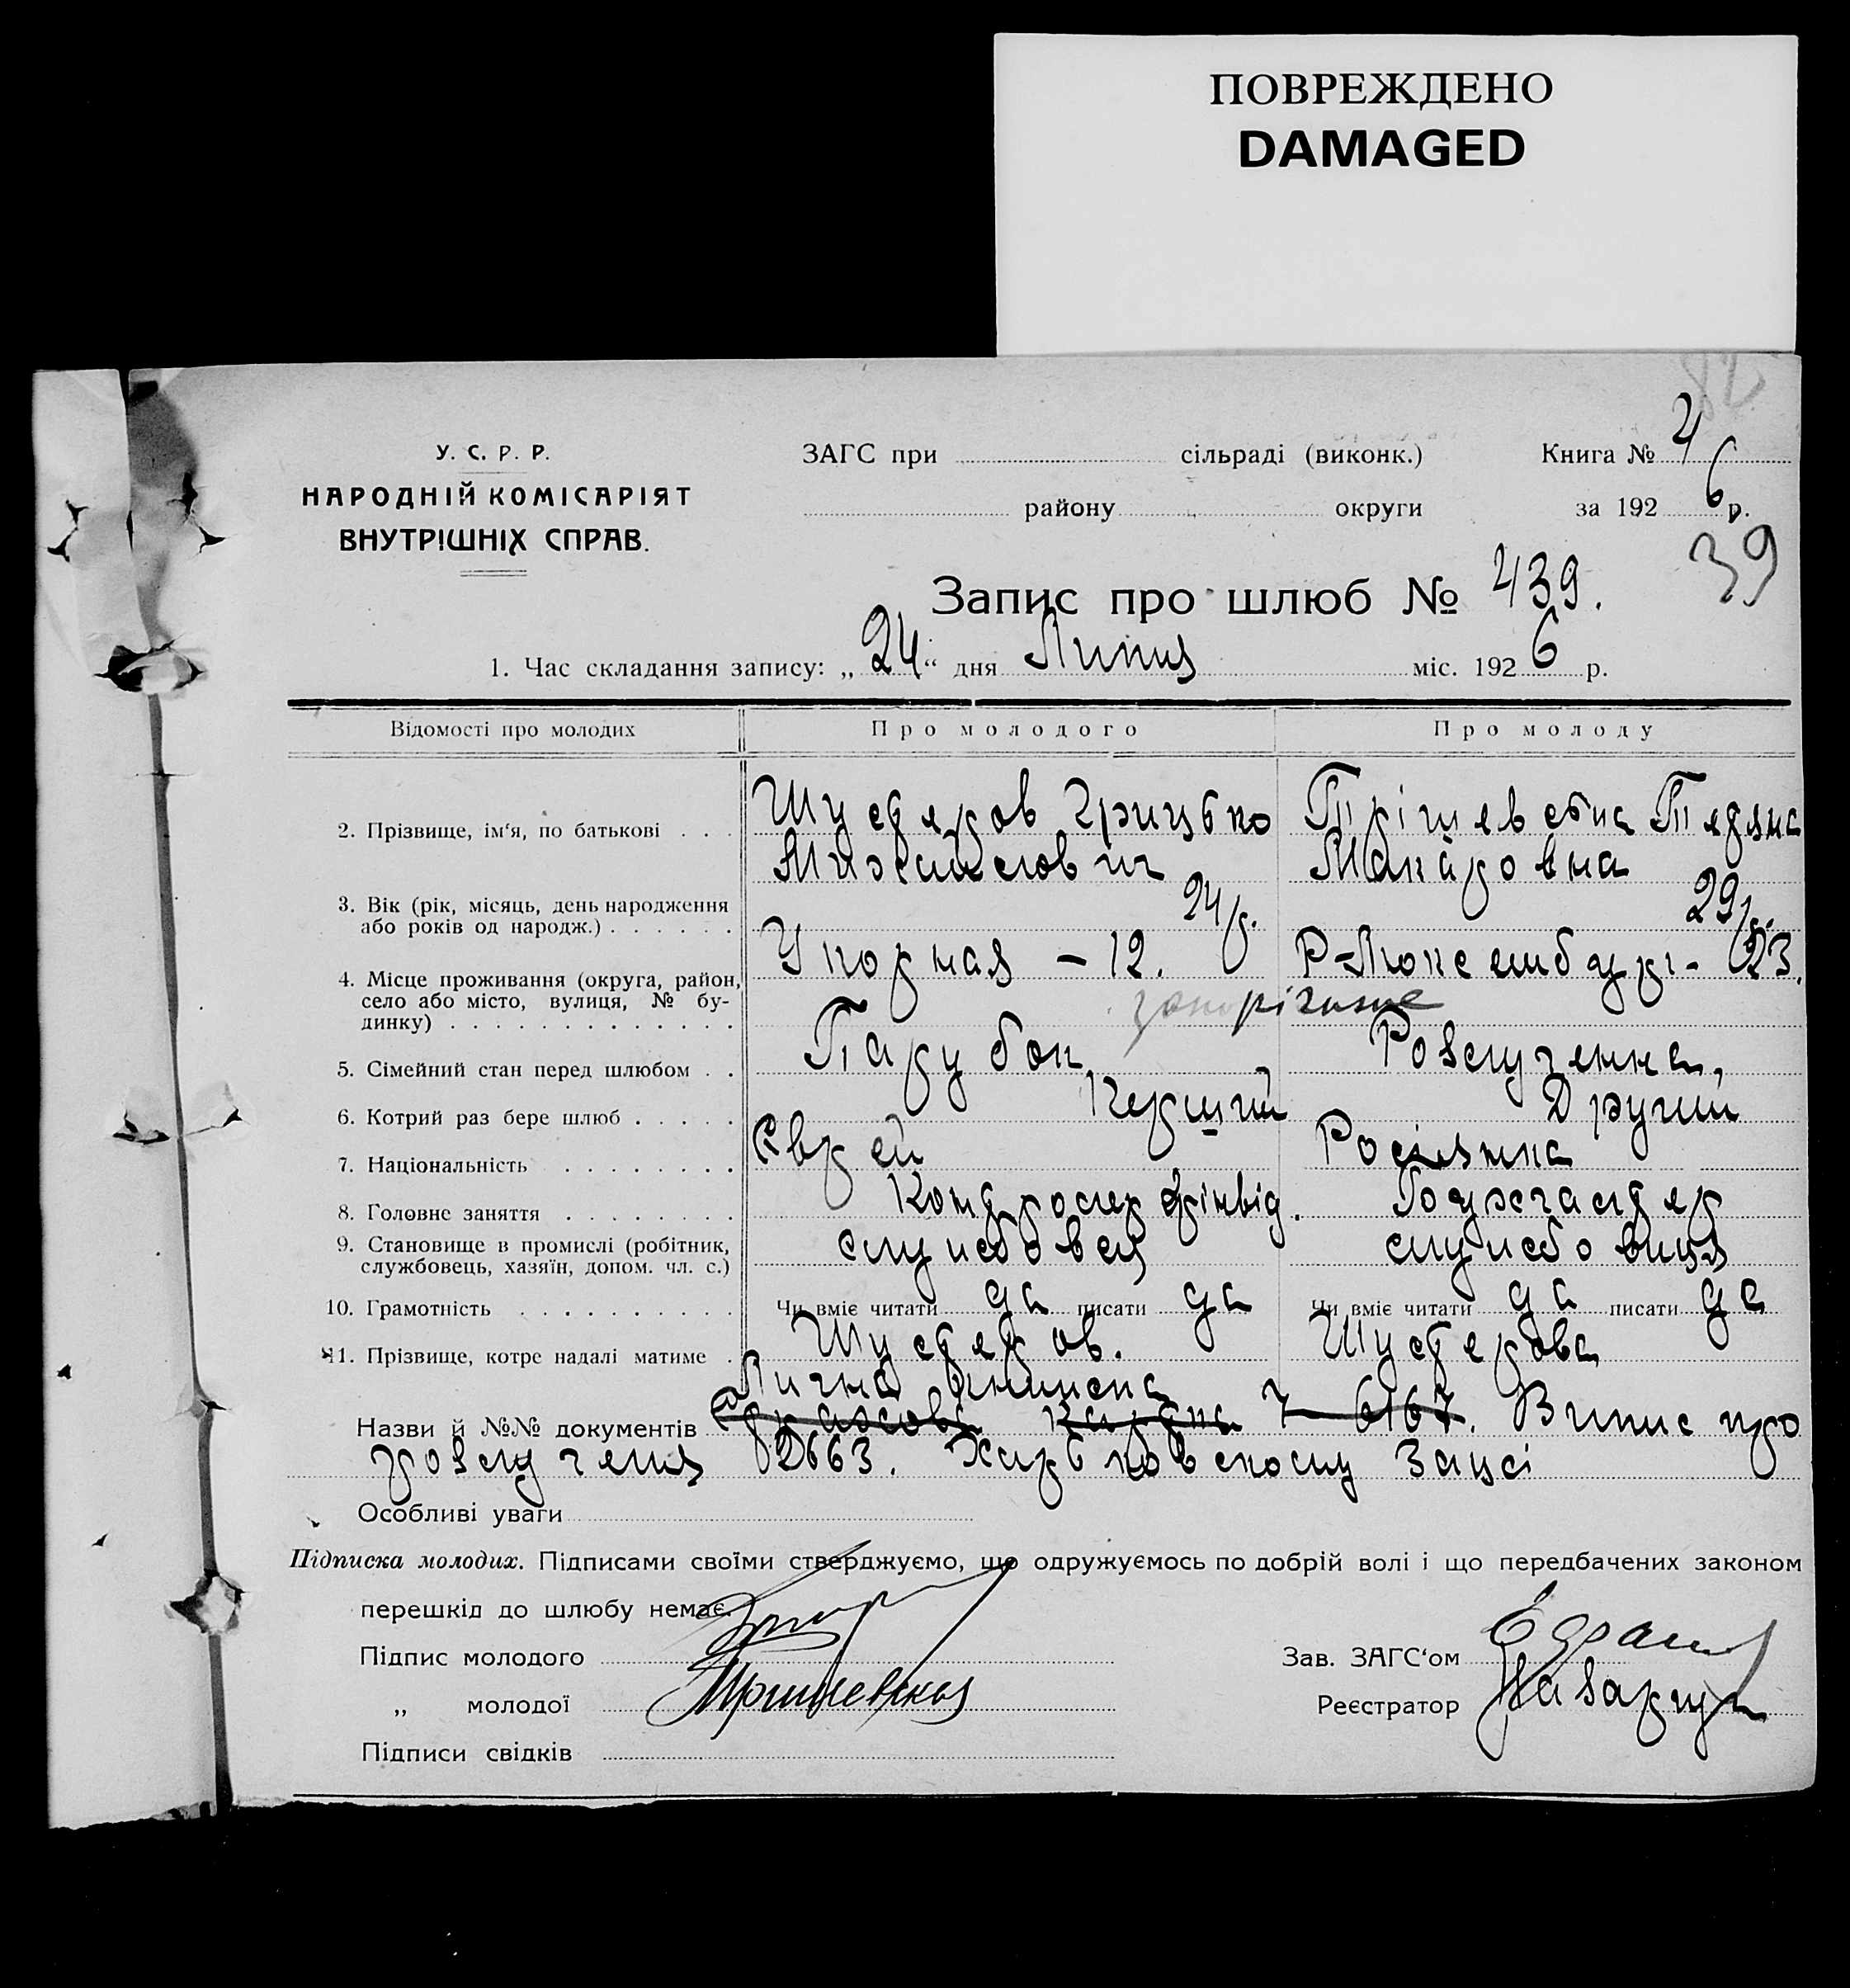 ПОВРЕЖДЕНО
DAMAGED
У. С. Р. Р.
НАРОДНІЙ КОМІСАРІЯТ
ВНУТРІШНІХ СПРАВ.
ЗАГС при сільраді (виконк.)
району округи
Книга № 4
за 1926 р.
39
Запис про шлюб № 439.
1. Час складання запису: „24“ дня Липця міс. 1926 р.
Відомості про молодих Про молодого Про молоду
2. Прізвище, ім'я, по батькові Шустеров Грицько Михайлович Трішевська Тетяна Макаровна
3. Вік (рік, місяць, день народження або років од народж.) 24 р. 29 р.
4. Місце проживання (округа, район, село або місто, вулиця, № будинку) Упорная – 12. Р-Люксембург- 23.
запоріжжя
5. Сімейний стан перед шлюбом Парубок Розлученна,
6. Котрий раз бере шлюб Перший Другий
7. Національність Єврей Росіянка
8. Головне заняття Контролер фінвід. Бухгалтер
9. Становище в промислі (робітник, службовець, хазяїн, допом. чл. с.) службовец службовиця
10. Грамотність Чи вміє читати да писати да Чи вміє читати да писати да
11. Прізвище, котре надалі матиме Шустеров. Шустерова
Лична
Назви й №№ документів 6167. Випис про
розлучення 2663. Харьковському Загсі
Особливі уваги
Підписка молодих. Підписами своїми стверджуємо, що одружуємось по добрій волі і що передбачених законом
перешкід до шлюбу немає.
Підпис молодого
„ молодої Тришевская
Підписи свідків
Зав. ЗАГС'ом
Реєстратор Назарчук